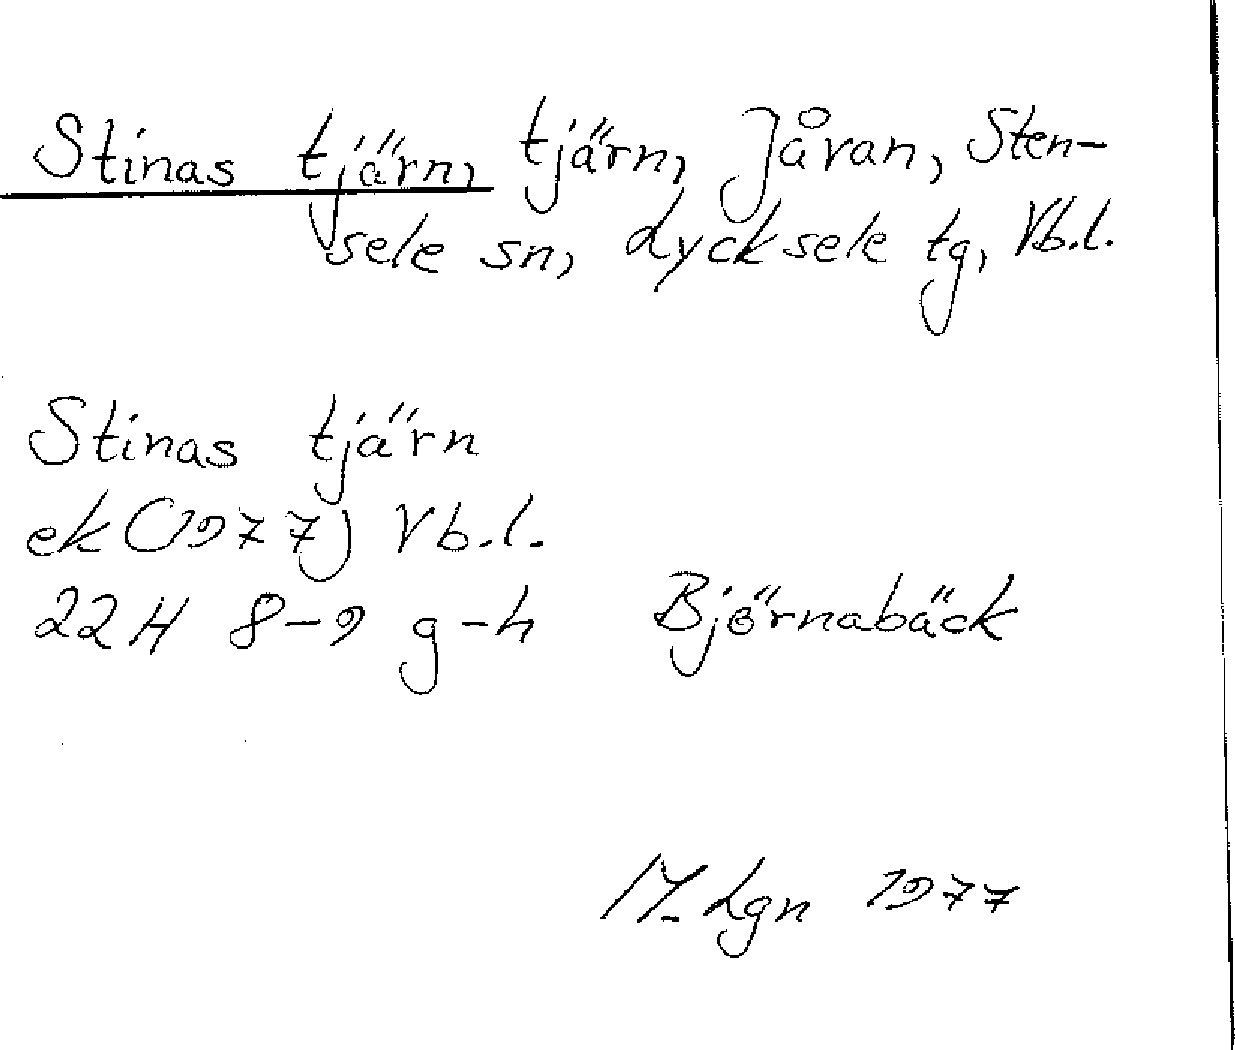 Stinas tjärn, tjärn, Jåvan, Sten-
sele sn, Lycksele tg, Vb.l.
Stinas tjärn
ek (1977) Vb.l.
22H 8-9 g-h Björnabäck
M. Lgn 1977